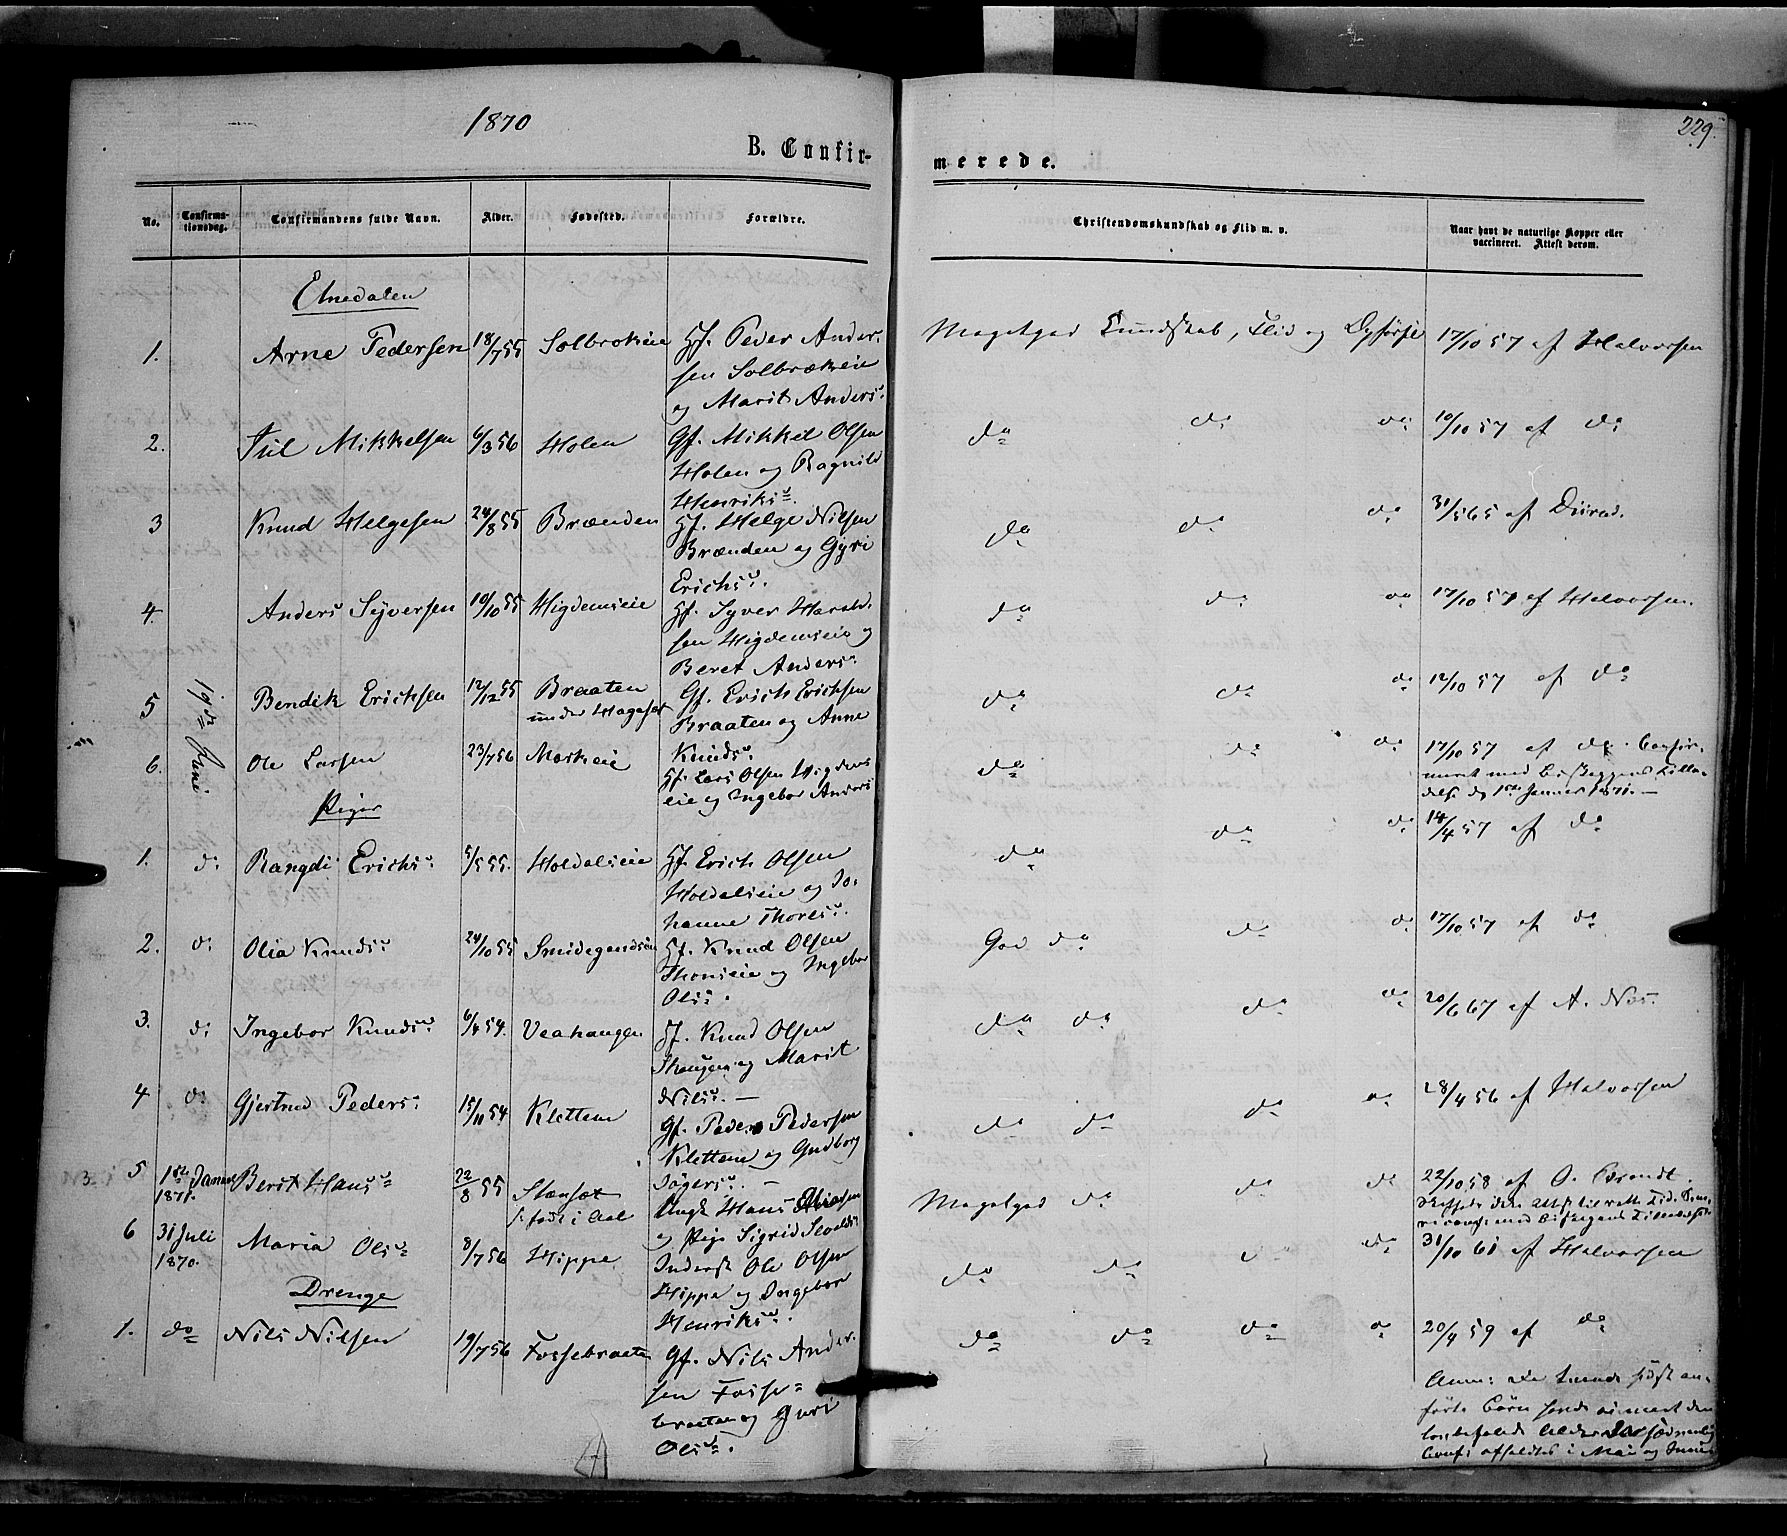 1870
229.
B. Confir-
merede.
No.
Confirma-
tionsdag.
Confirmandens fulde Navn.
Alder.
Fødested.
Forældre.
Christendomskundskab og Flid m. v.
Naar havt de naturlige Kopper eller
vaccineret. Attest derom.
Etnedalen
1. Arne Pedersen 18/7 55 Solbrekeie Gf. Peder Ander-
sen Solbrækeie
og Marit Anders:
Megetgod Kundskab, Flid og Opførsel 17/10 57 af Halvorsen
2. Jul Mikkelsen 6/3 56 Holen Gf. Mikkel Olsen
Holen og Ragnild
Henriks:
do do do 10/10 57 af do
3 Knud Helgesen 24/8 55 Brænden Gf. Helge Nilsen
Brænden og Gyri
Erichs:
do do do 31/5 65 af
4. Anders Syversen 10/10 55 Higdemseie Gf. Syver Harald-
sen Higdemseie og
Beret Anders:
do do do 17/10 57 af Halvorsen.
19de Juni
5 Bendik Erichsen 12/12 55 Braaten
under Hageset
Gf. Erich Erichsen
Braaten og Anne
Knuds:
do do do 12/10 57 af do
6. Ole Larsen 23/7 56 Moskeie
Gf. Lars Olsen Higdems
eie og Ingebor Anders
do do do 17/10 57 af do. Confir-
meret med Biskoppens Tilla-
delse d. 1ste Januar 1871. —
Piger
1. do Rangdi Erichs: 5/5 55. Holdalseie Gf. Erich Olsen
Holdalseie og Jo-
hanne Thores:.
do do do 18/4 57 af do
2. do Olia Knuds: 24/10 55 Smidegardseie Gf. Knud Olsen
Thonseie og Ingebor
Ols:.
God do do do 17/10 57 af do
3. do Ingebor Knuds: 6/4 54. Veahaugen Gf. Knud Olsen
Haugen og Marit
Nils:. —
do do do do 20/6 67 af A. Næs.
4 do Gjertrud Peders: 15/11 54 Klettem
Gf. Peder Pedersen
Klettem og Gudborg
do do do do 28/4 56 af Halvorsen
5 1ste Januar
1871.
Berit Hans: 22/8 55 Stensæt
født i Aal
Ungk. Hans
og Pige Sigrid
Megetgod do do do 22/10 58 af O. Brandt.
6 31 Juli
1870.
Maria Ols: 8/7 56 Hippe
Inderst Ole Olsen
Hippe og Ingebor
Henriks:.
do do do do 31/10 61 af Halvorsen
Drenge
1. do Nils Nilsen 19/7 56 Fossebraaten Gf. Nils Ander-
sen Fosse-
braaten og Guri
Ols:.
do do do do 20/4 59 af do
Anm: De tvende sidst an-
førte Børn